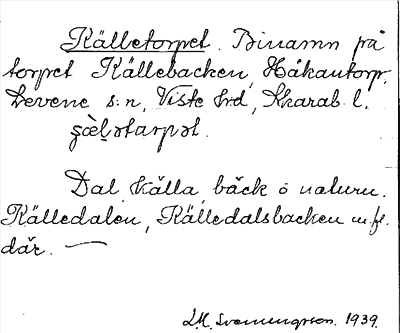 Källetorpet. Binamn på
torpet Källebacken, Håkantorp,
Levene s:n, Viste hd, Skarab. l.
ʂæḷətarpət.
Dal, källa, bäck o naturn.
Källedalen, Källedalsbacken m. fl.
där. —
L.M. Svenungsson. 1939.